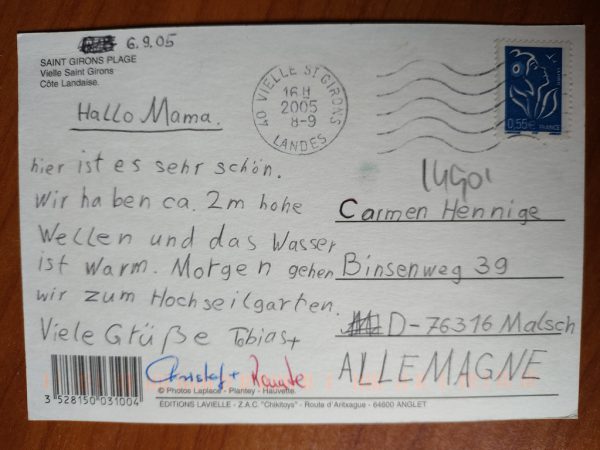 6.9.05
SAINT GIRONS PLAGE
Vielle Saint Girons
Côte Landaise.
Hallo Mama.
hier ist es sehr schön.
Wir haben ca. 2m hohe
Wellen und das Wasser
ist warm. Morgen gehen
wir zum Hochseilgarten.
Viele Grüße Tobias+
Christof + Renate
3 528150 031004
© Photos Laplace - Plantey - Hauvette.
ÉDITIONS LAVIELLE - Z.A.C. "Chikitoys" - Route d'Aritxague - 64600 ANGLET
40 VIELLE ST GIRONS
16H
2005
8-9
LANDES
0,55€ FRANCE
Carmen Hennige
Binsenweg 39
D-76316 Malsch
ALLEMAGNE